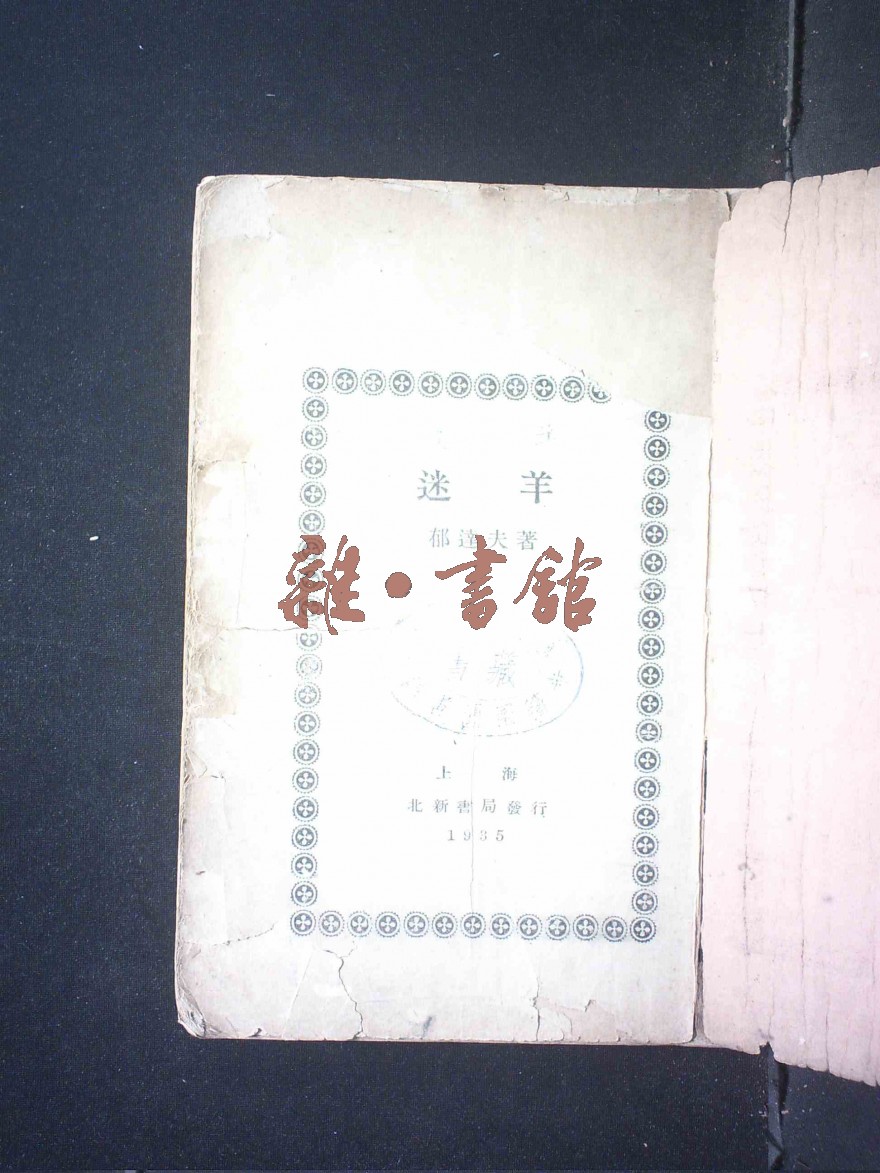 迷羊
郁達夫著
雜·書館
書藏
上海
北新書局發行
1935